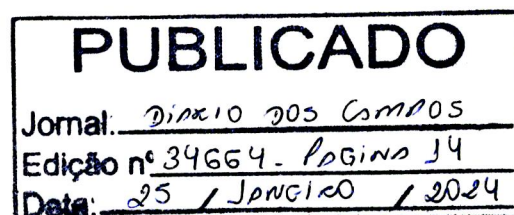 PUBLICADO
Jornal: DIARIO DOS CAMPOS
Edição nº 34664 - PAGINA 14
Data: 25 / JANEIRO / 2024